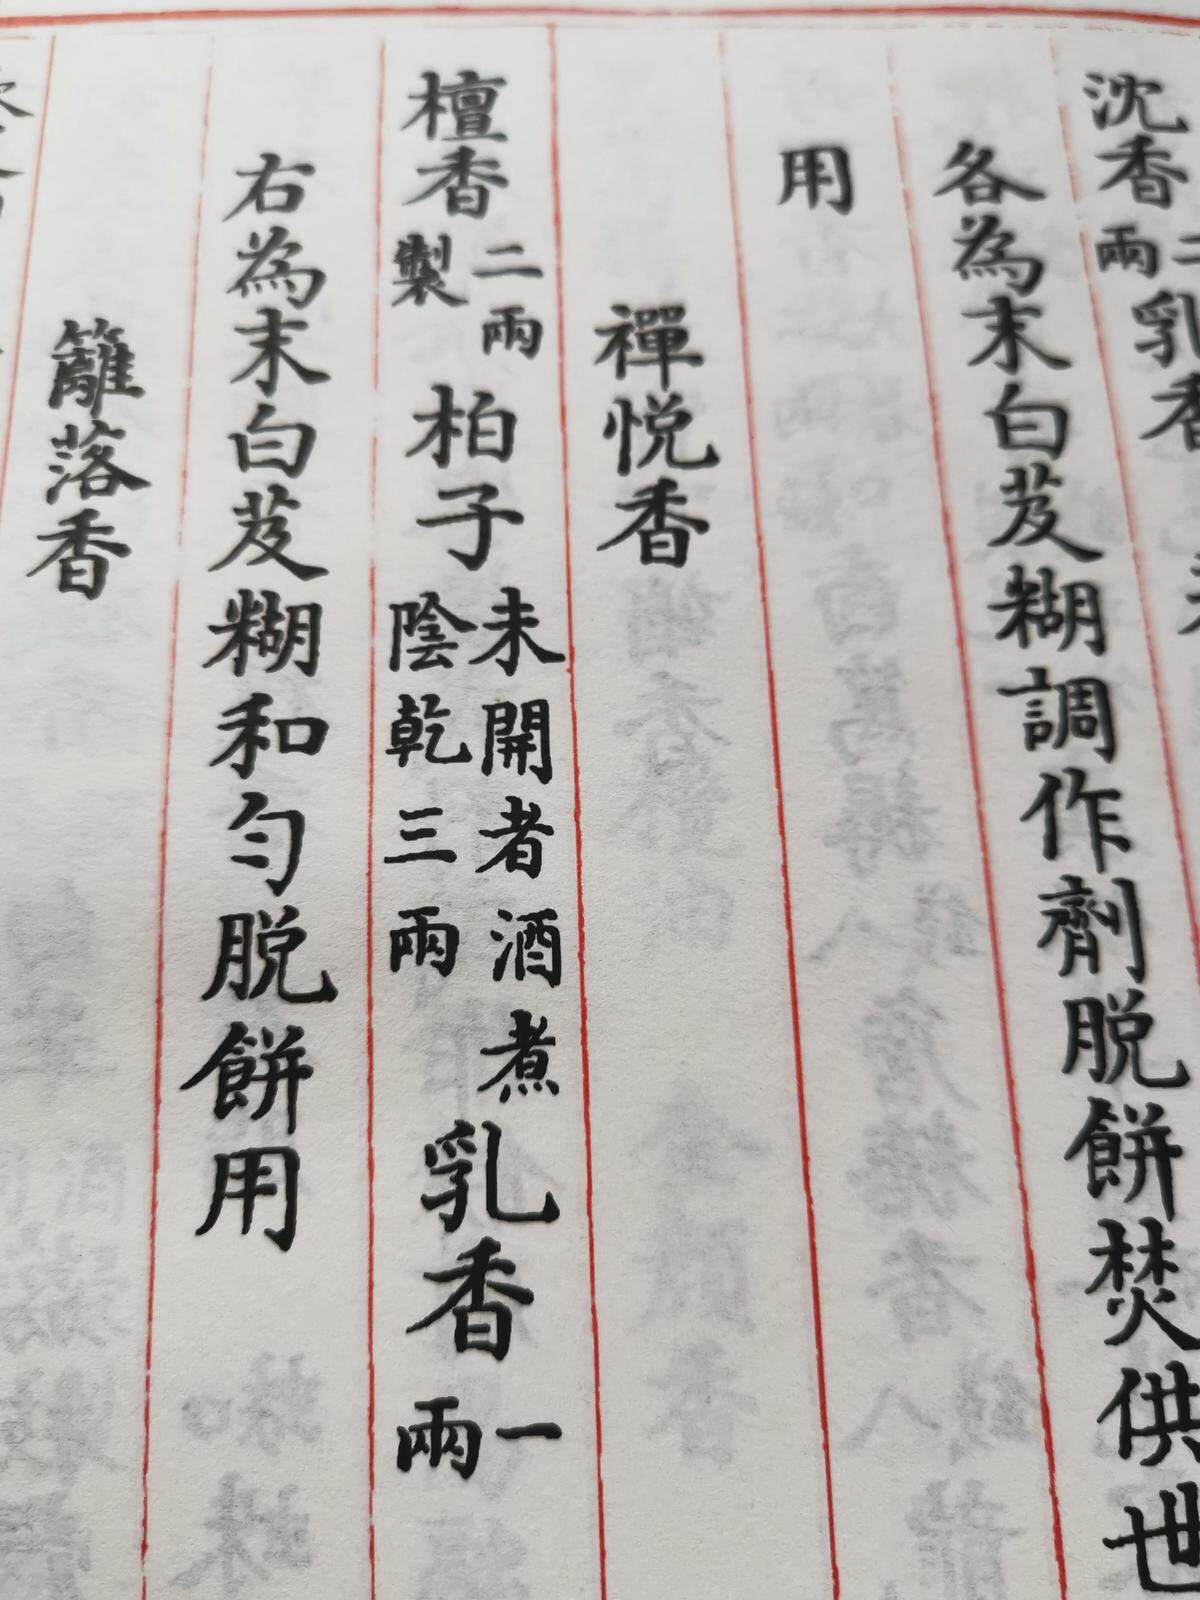 沈香二兩乳香
各為末白芨糊調作劑脱餅焚供世
用
禪悦香
檀香二兩製柏子未開者酒煮陰乾三兩乳香一兩
右為末白芨糊和勻脱餅用
籬落香